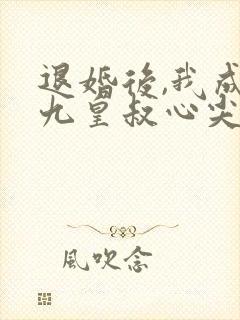 退婚後,我成
九皇叔心尖
風吹念